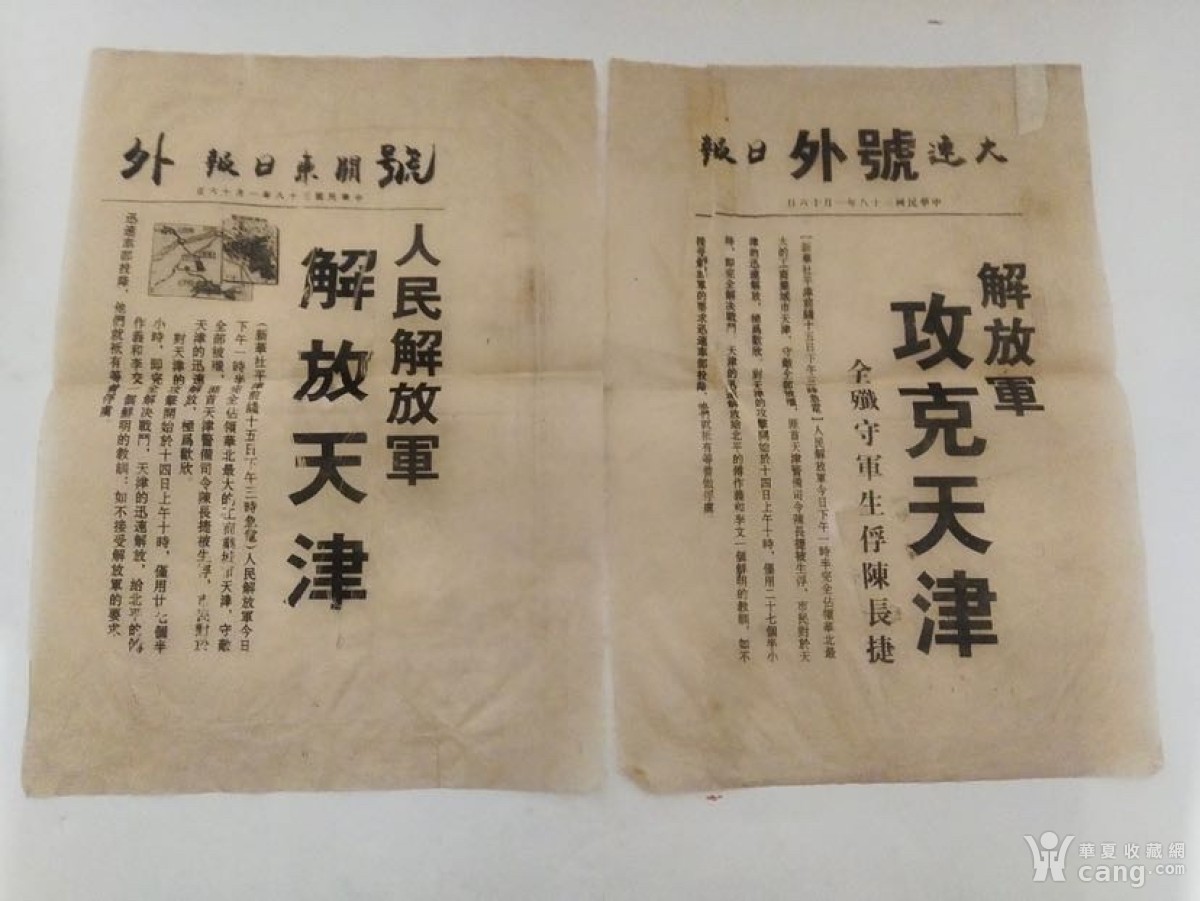 號 關東日報 外
中華民國三十八年一月十六日
人民解放軍
解放天津
(新華社平津前綫十五日下午三時急電)人民解放軍今日
下午一時半完全佔領華北最大的工商業城市天津,守敵
全部被殲,匪首天津警備司令陳長捷被生俘,市民對於
天津的迅速解放,極爲歡欣。
對天津的攻擊開始於十四日上午十時,僅用廿七個半
小時,即完全解決戰鬥,天津的迅速解放,給北平的傅
作義和李文一個鮮明的教訓:如不接受解放軍的要求
迅速率部投降,他們就祇有等着俘虜
大連 號外 日報
中華民國三十八年一月十六日
解放軍
攻克天津
全殲守軍生俘陳長捷
【新華社平津前綫十五日下午三時急電】人民解放軍今日下午一時半完全佔領華北最
大的工商業城市天津,守敵全部被殲,匪首天津警備司令陳長捷被生俘,市民對於天
津的迅速解放,極爲歡欣。對天津的攻擊開始於十四日上午十時,僅用二十七個半小
時,即完全解決戰鬥,天津的迅速解放給北平的傅作義和李文一個鮮明的教訓,如不
接受解放軍的要求迅速率部投降,他們就祇有等着做俘虜
華夏收藏網
cang.com